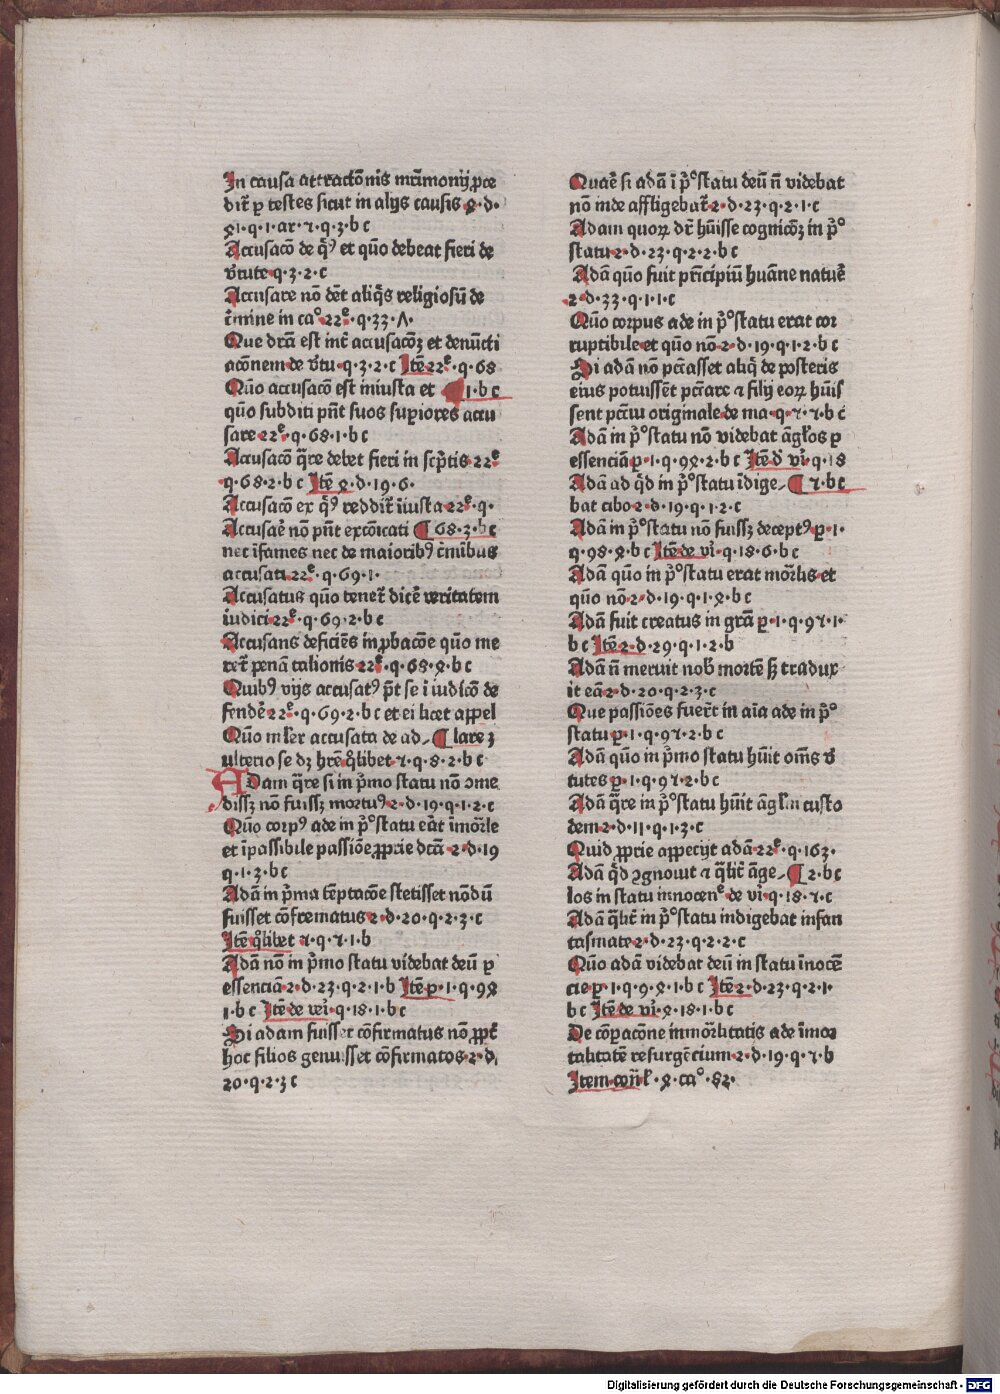 In causa attractōnis mr̄imonij ꝓce
dit̄ ꝑ testes sicut in alijs causis ꝝ·d·
ꝝ1·q·1·ar·ꝛ·q·3·b c
Accusacō de qͣ⁹ et quō debeat fieri de
v̄tute·q·3·2·c
Accusare nō dꝫt aliq̄s religiosū de
c̄mine in caᵒ·22ᵉ·q·33·Λ·
Que dr̄a est int̄ accusacōꝫ et denūcti
acōnem·de v̄tu·q·3·2·c Itē·22ᵉ·q·68
Quō accusacō est iniusta et ¶ 1·b c
quō subditi pn̄t suos suꝑiores accu
sare·22ᵉ·q·68·1·b c
Accusacō q̄re debet fieri in scp̄tis·22ᵉ
·q·68·2·b c Itē ꝝ·d·19·6·
Accusacō ex qͣ⁹ reddit̄ iiusta·22ᵉ·q·
Accusaē nō pn̄t excōnicati ¶ 68·3·b c
nec īfames nec de maiorib⁹ c̄mībus
accusati·22ᵉ·q·69·1·
Accusatus quō tenet̄ dicē veritatem
iudici·22ᵉ·q·69·2·b c
Accusans deficiēs in ꝓbacōe quō me
ret̄ penā talionis·22ᵉ·q·68·ꝝ·b c
Quib⁹ vijs accusat⁹ pt̄ se ī iudicō de
fendē·22ᵉ·q·69·2·b c et ei licet appel
Quō ml̄er accusata de ad- ¶ lare 3
ulterio se dꝫ hr̄e·q̄libet·ꝛ·q·8·2·b c
Adam q̄re si in pͥmo statu nō ↄme
dissꝫ nō fuissꝫ mortu⁹·2·d·19·q·1·2·c
Quō corp⁹ ade in p̄ᵒ statu eāt īmōrle
et īpassibile passiōe ꝓprie dc̄ā·2·d·19
q·1·3·b c
Adā in pͥma tēptacōe stetisset nōdū
fuisset cōfrematus·2·d·20·q·2·3·c
Itē q̄libet ꝛ·q·ꝛ·1·b
Adā nō in pͥmo statu videbat deū ꝑ
essenciā·2·d·23·q·2·1·b Itē p·1·q·9ꝝ
1·b c Itē de vēi·q·18·1·b c
Si adam fuisset cōfirmatus nō ꝓpt̄
hoc filios genuisset cōfirmatos·2·d·
20·q·2·3 c
Quaē si adā ī p̄ᵒ statu deū n̄ videbat
nō inde affligebat̄·2·d·23·q·2·1·c
Adam quoꝝ dr̄ hūisse cognicōꝫ in p̄ᵒ
statu·2·d·23·q·2·2·b c
Adā quō fuit pn̄cipiū huāne natuē
2·d·33·q·1·1·c
Quō corpus ade in p̄ᵒ statu erat cor
ruptibile et quō nō·2·d·19·q·1·2·b c
Si adā nō pc̄asset aliq̄ de posteris
eius potuissēt pc̄are ⁊ filij eoꝝ hūis
sent pc̄m originale·de ma·q·ꝛ·ꝛ·b c
Adā in p̄ᵒ statu nō videbat āgl̄os ꝑ
essenciā·p·1·q·9ꝝ·2·b c Itē d̄ vi̇̄·q·18
Adā ad q̄d in p̄ᵒ statu īdige- ¶ ꝛ·b c
bat cibo·2·d·19·q·1·2·c
Adā in p̄ᵒ statu nō fuissꝫ decept⁹·p·1·
q·98·ꝝ·b c Itē de vi̇̄·q·18·6·b c
Adā quō in p̄ᵒ statu erat mōrlis et
quō nō·2·d·19·q·1·ꝝ·b c
Adā fuit creatus in grā·p·1·q·9ꝛ·1·
b c Itē 2·d·29·q·1·2·b
Adā n̄ meruit nob̄ mortē sꝫ tradux
it eā·2·d·20·q·2·3·c
Que passiōes fuer̄t in aīa ade in p̄ᵒ
statu·p·1·q·9ꝛ·2·b c
Adā quō in pͥmo statu hūit om̄s v̄
tutes·p·1·q·9ꝛ·2·b c
Adā q̄re in p̄ᵒ statu hūit āgl̄m custo
dem·2·d·11·q·1·3·c
Quid ꝓprie appecijt adā·22ᵉ·q·163·
Adā q̄d ↄgnouit ⁊ q̄lit̄ āge- ¶ 2·b c
los in statu innocenᵉ·de vi̇̄·q·18·ꝛ·c
Adā q̄lit̄ in p̄ᵒ statu indigebat infan
tasmate·2·d·23·q·2·2·c
Quō adā videbat deū in statu īnocē
cie·p·1·q·9·ꝝ·1·b c Itē 2·d·23·q·2·1·
b c Itē de vi̇̄·ꝝ·18·1·b c
De cōꝑacōne immōrlitatis ade īmor
talitatē resurgēcium·2·d·19·q·ꝛ·b
Item con̄·l·ꝝ·caᵒ·82·
Digitalisierung gefördert durch die Deutsche Forschungsgemeinschaft - DFG